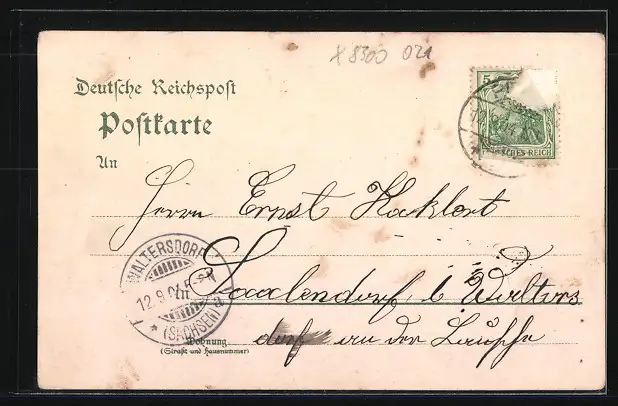 x 8300 021
Deutsche Reichspost
Postkarte
An
5
REICH
Herrn Ernst
WALTERSDORF
12.9.04
(SACHSEN)
in Saalendorf b Walters
dorf an der
Wohnung
(Straße und Hausnummer)